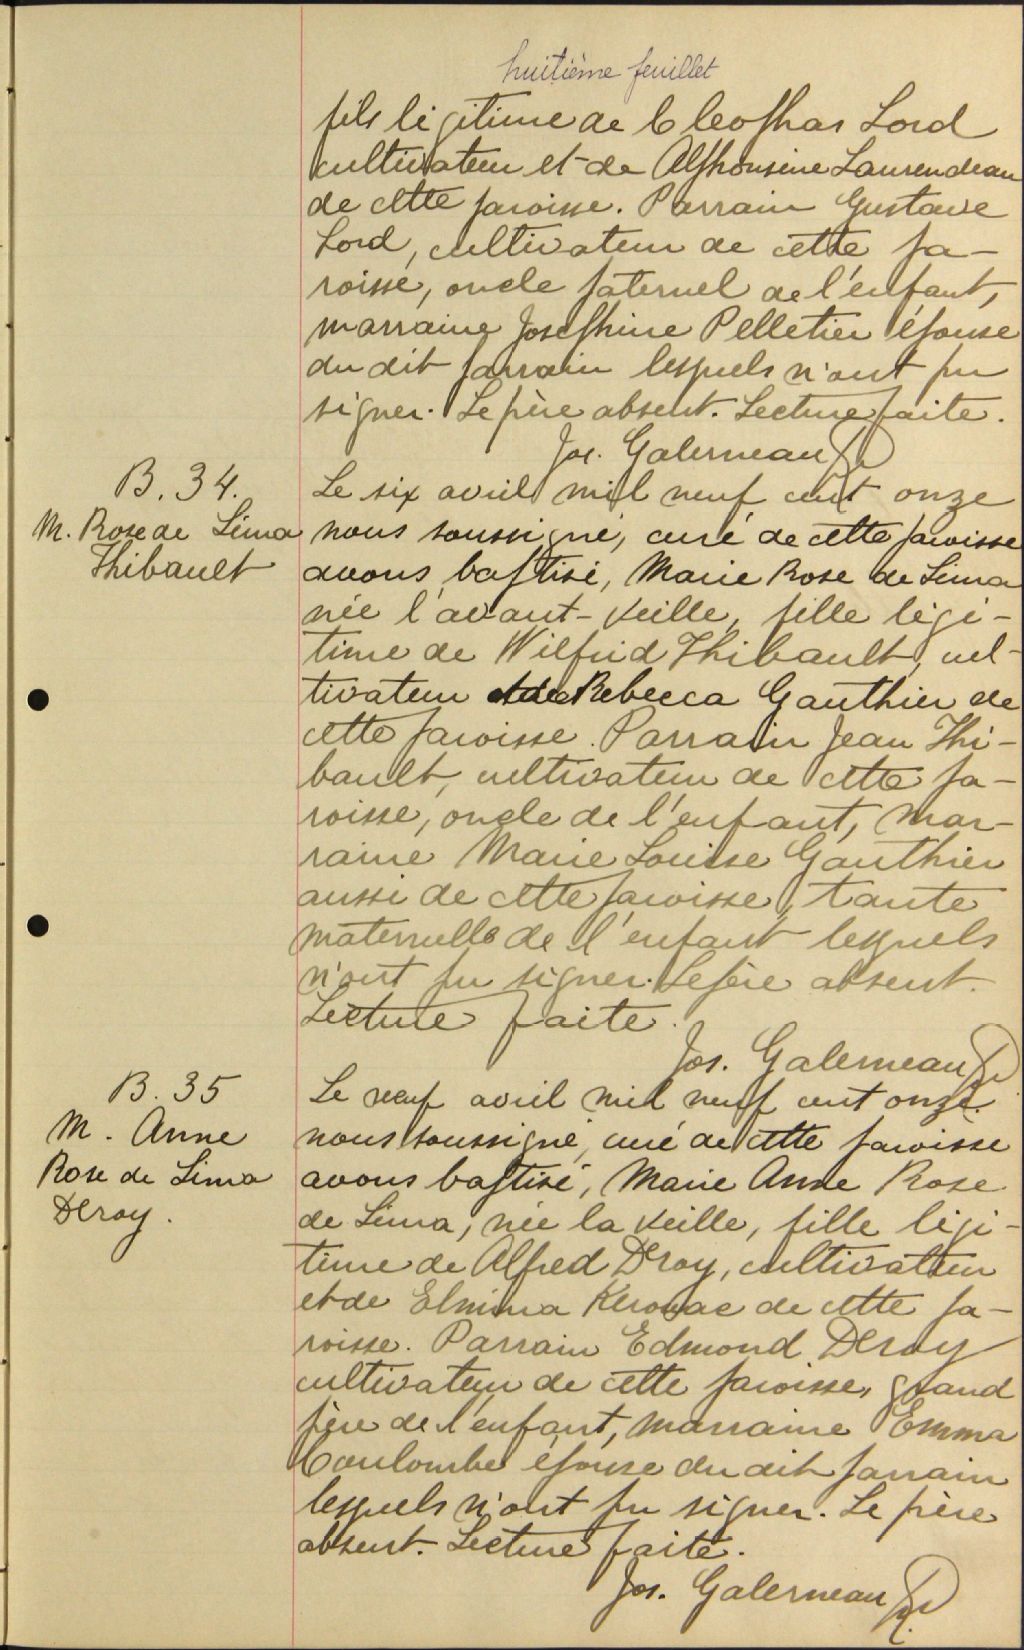 huitième feuillet
fils légitime de Cleophas Lord
cultivateur et de Alphonsine Laurendeau
de cette paroisse. Parrain Gustave
Lord, cultivateur de cette pa-
roisse, oncle paternel de l'enfant,
marraine Josephine Pelletier épouse
du dit parrain lesquels n'ont pu
signer. Le père absent. Lecture faite.
Jos. Galerneau Ptr
B. 34.
M. Rose de Lima
Thibault
Le six avril mil neuf cent onze
nous soussigné, curé de cette paroisse
avons baptisé, Marie Rose de Lima
née l'avant-veille, fille légi-
time de Wilfrid Thibault, cul-
tivateur et de Rebecca Gauthier de
cette paroisse. Parrain Jean Thi-
bault, cultivateur de cette pa-
roisse, oncle de l'enfant, mar-
raine Marie Louise Gauthier
aussi de cette paroisse, tante
maternelle de l'enfant lesquels
n'ont pu signer. Le père absent.
Lecture faite.
Jos. Galerneau Ptr
B. 35
M. Anne
Rose de Lima
Deroy.
Le neuf avril mil neuf cent onze.
nous soussigné, curé de cette paroisse
avons baptisé, Marie Anne Rose
de Lima, née la veille, fille légi-
time de Alfred Deroy, cultivateur
et de Elmina Kerouac de cette pa-
roisse. Parrain Edmond Deroy
cultivateur de cette paroisse, grand
père de l'enfant, marraine Emma
Coulombe épouse du dit parrain
lesquels n'ont pu signer. Le père
absent. Lecture faite.
Jos. Galerneau Ptr